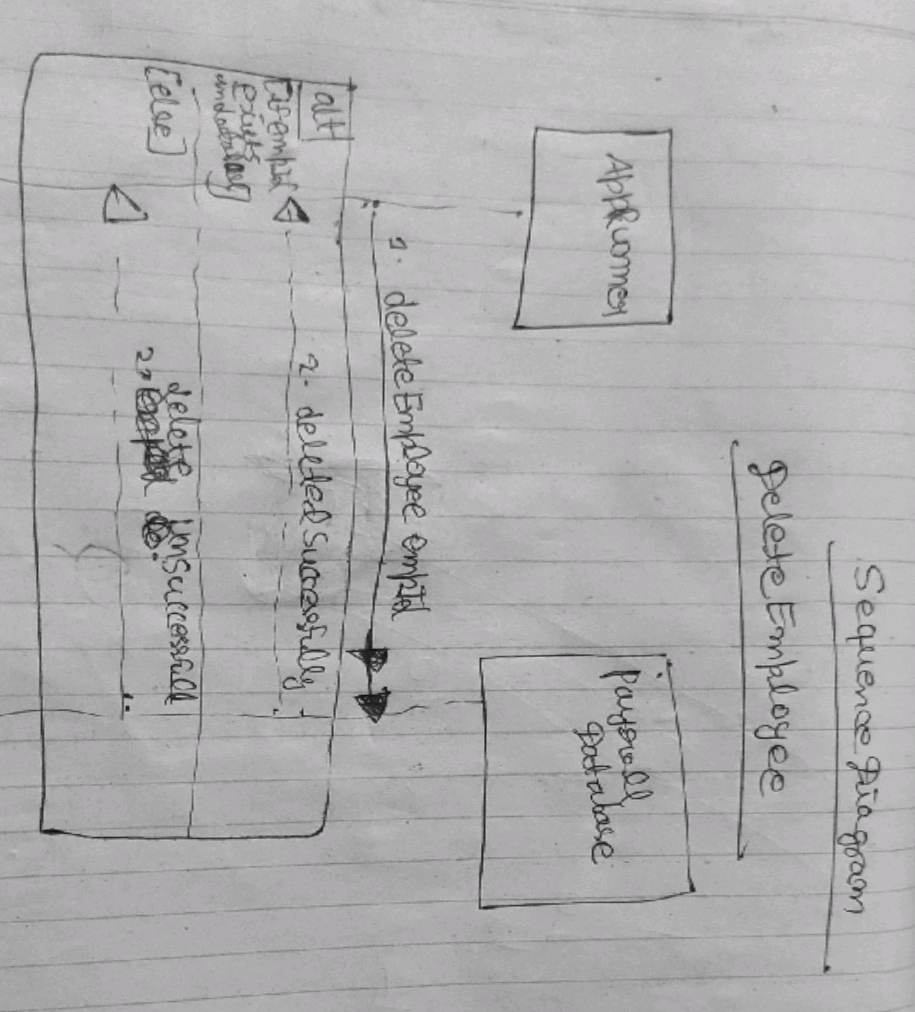 Sequence Diagram
Delete Employee
AppRunner
Payroll
Database
1. deleteEmployee empId
alt
[if empId
exists
2. deleted successfully
[else]
2. delete Unsuccessful